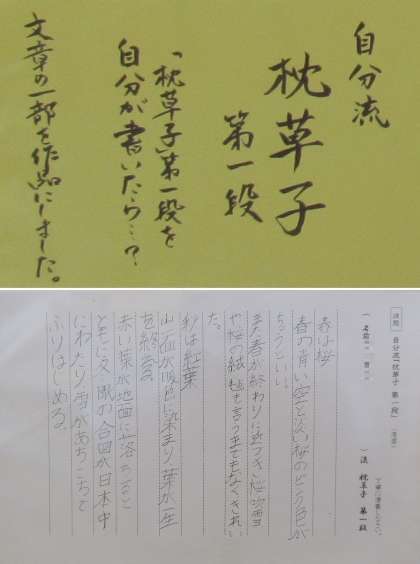 自分流
枕草子
第一段
「枕草子」第一段を
自分が書いたら…?
文章の一部を作品にしました。
自分流「枕草子 第一段」
流 枕草子 第一段
春は桜
春の青い空と淡い桜のどう色が
ちょうどいい。
また春が終わりに近づき桜
や桜の絨毯も言うまでもなくきれい
だ。
秋は紅葉
山 が 色に染まり葉が一生
を終える
赤い葉が地面に落ちると
ともに 合図が日本中
にわたり雪があちこちで
ふりはじめる。